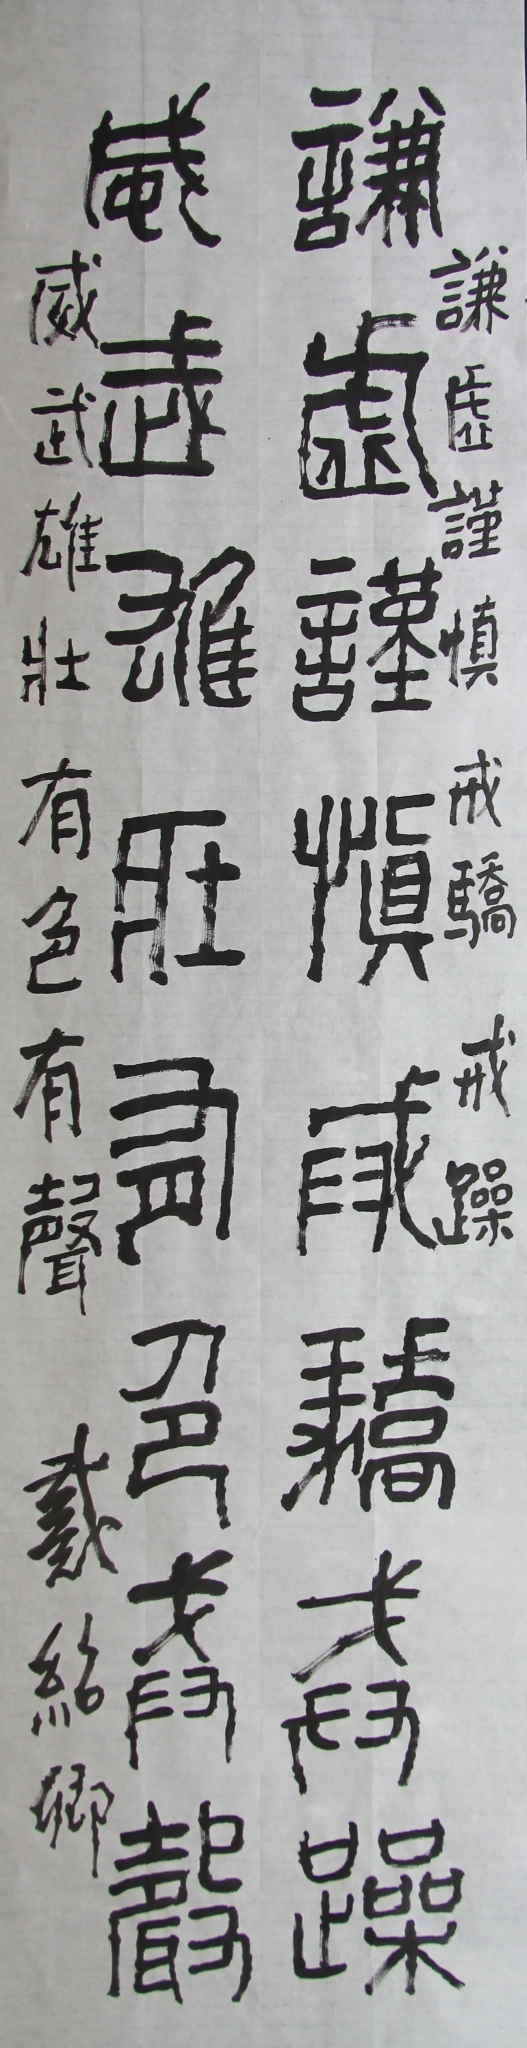 謙虛謹慎戒驕戒躁
謙虛謹慎戒驕戒躁
威武雄壯有色有聲
威武雄壯有色有聲
戴紹卿